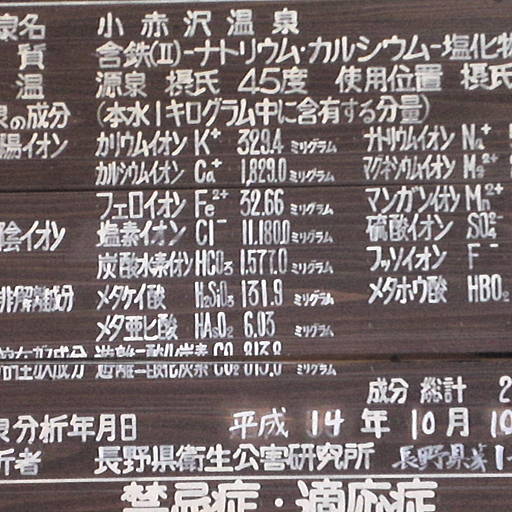 泉名 小赤沢温泉
質 含鉄(II)-ナトリウム・カルシウム-塩化物
温 源泉 摂氏 45度 使用位置 摂氏
泉の成分 (本水1キログラム中に含有する分量)
陽イオン カリウムイオン K⁺ 329.4 ミリグラム ナトリウムイオン Na⁺
カルシウムイオン Ca⁺ 1,829.0 ミリグラム マグネシウムイオン Mg²⁺
フェロイオン Fe²⁺ 32.66 ミリグラム マンガンイオン Mn²⁺
陰イオン 塩素イオン Cl⁻ 11,180.0 ミリグラム 硫酸イオン SO₄²⁻
炭酸水素イオン HCO₃ 1,577.0 ミリグラム フッソイオン F⁻
非解離成分 メタケイ酸 H₂SiO₃ 131.9 ミリグラム メタホウ酸 HBO₂
メタ亜ヒ酸 HAsO₂ 6.03 ミリグラム
成分 遊離二酸化炭素 CO₂ 813.8 ミリグラム
成分 総計 2
泉分析年月日 平成 14 年 10 月 10
析者 長野県衛生公害研究所 長野県
禁忌症・適応症